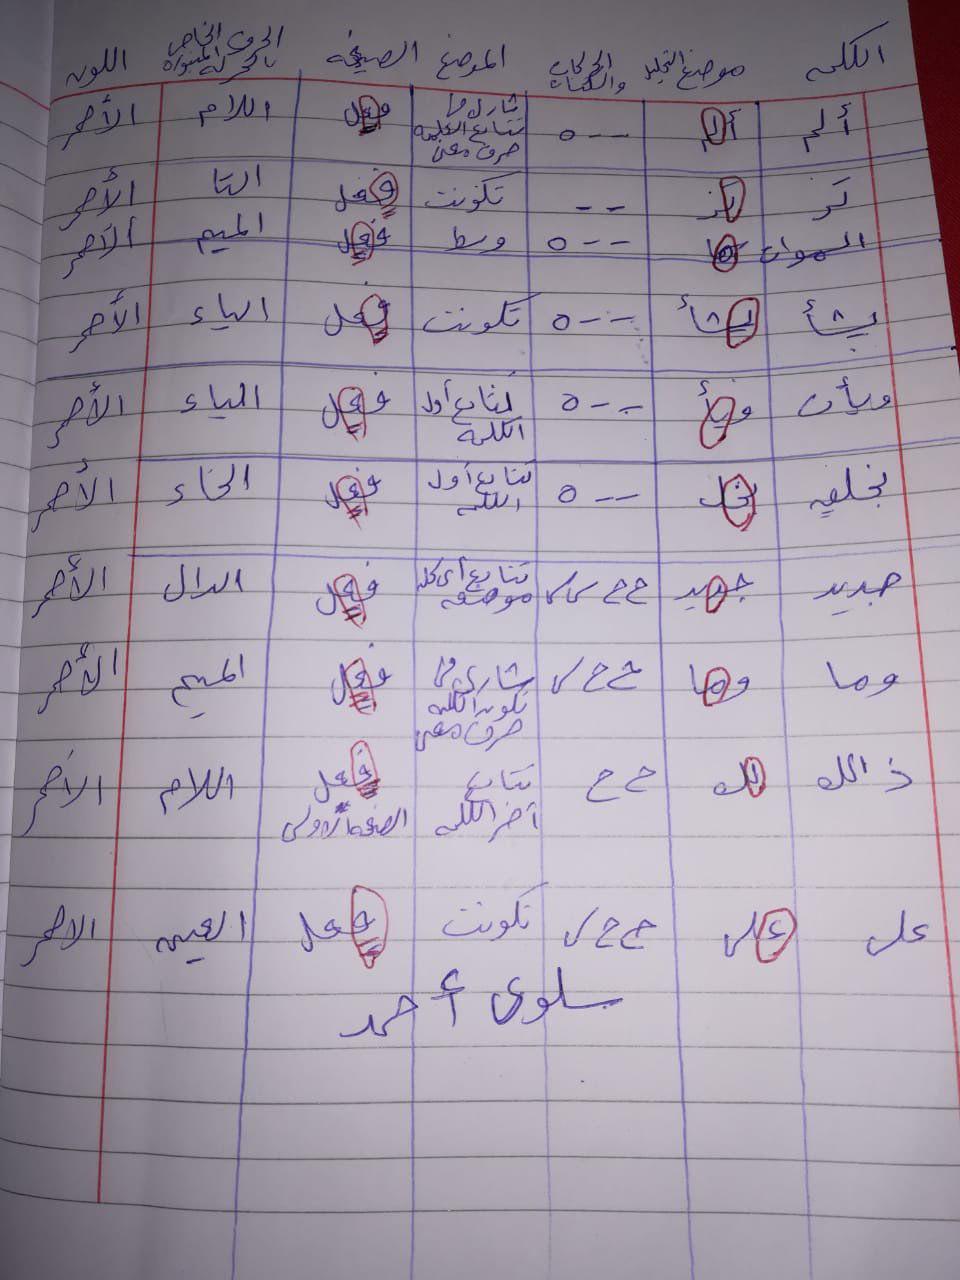 الكلمة موضع التجليد الحركات والسكنات الموضع الصيغة الحرف الخاص بالحركة اللون
ألم ألم --o تتابع الكلمة حرف معنى فعل اللام الأحمر
تر تر -- تكونت فعل التا الأحمر
السموات ما --o وسط فعل الميم الأحمر
يشأ يشأ --o تكونت فعل الياء الأحمر
ويأت ويأ --o تتابع أول الكلمة فعل الياء الأحمر
بخلق بخل --o تتابع أول الكلمة فعل الخاء الأحمر
جديد جديد ح ح ى ى تتابع أى كلمة فعل الدال الأحمر
وما وما ح ح ى تكون الكلمة حرف معنى فعل الميم الأحمر
ذالك لك ح ح تتابع آخر الكلمة فعل اللام الأحمر
على على ح ح ى تكونت فعل العين الاحمر
سلوى أحمد